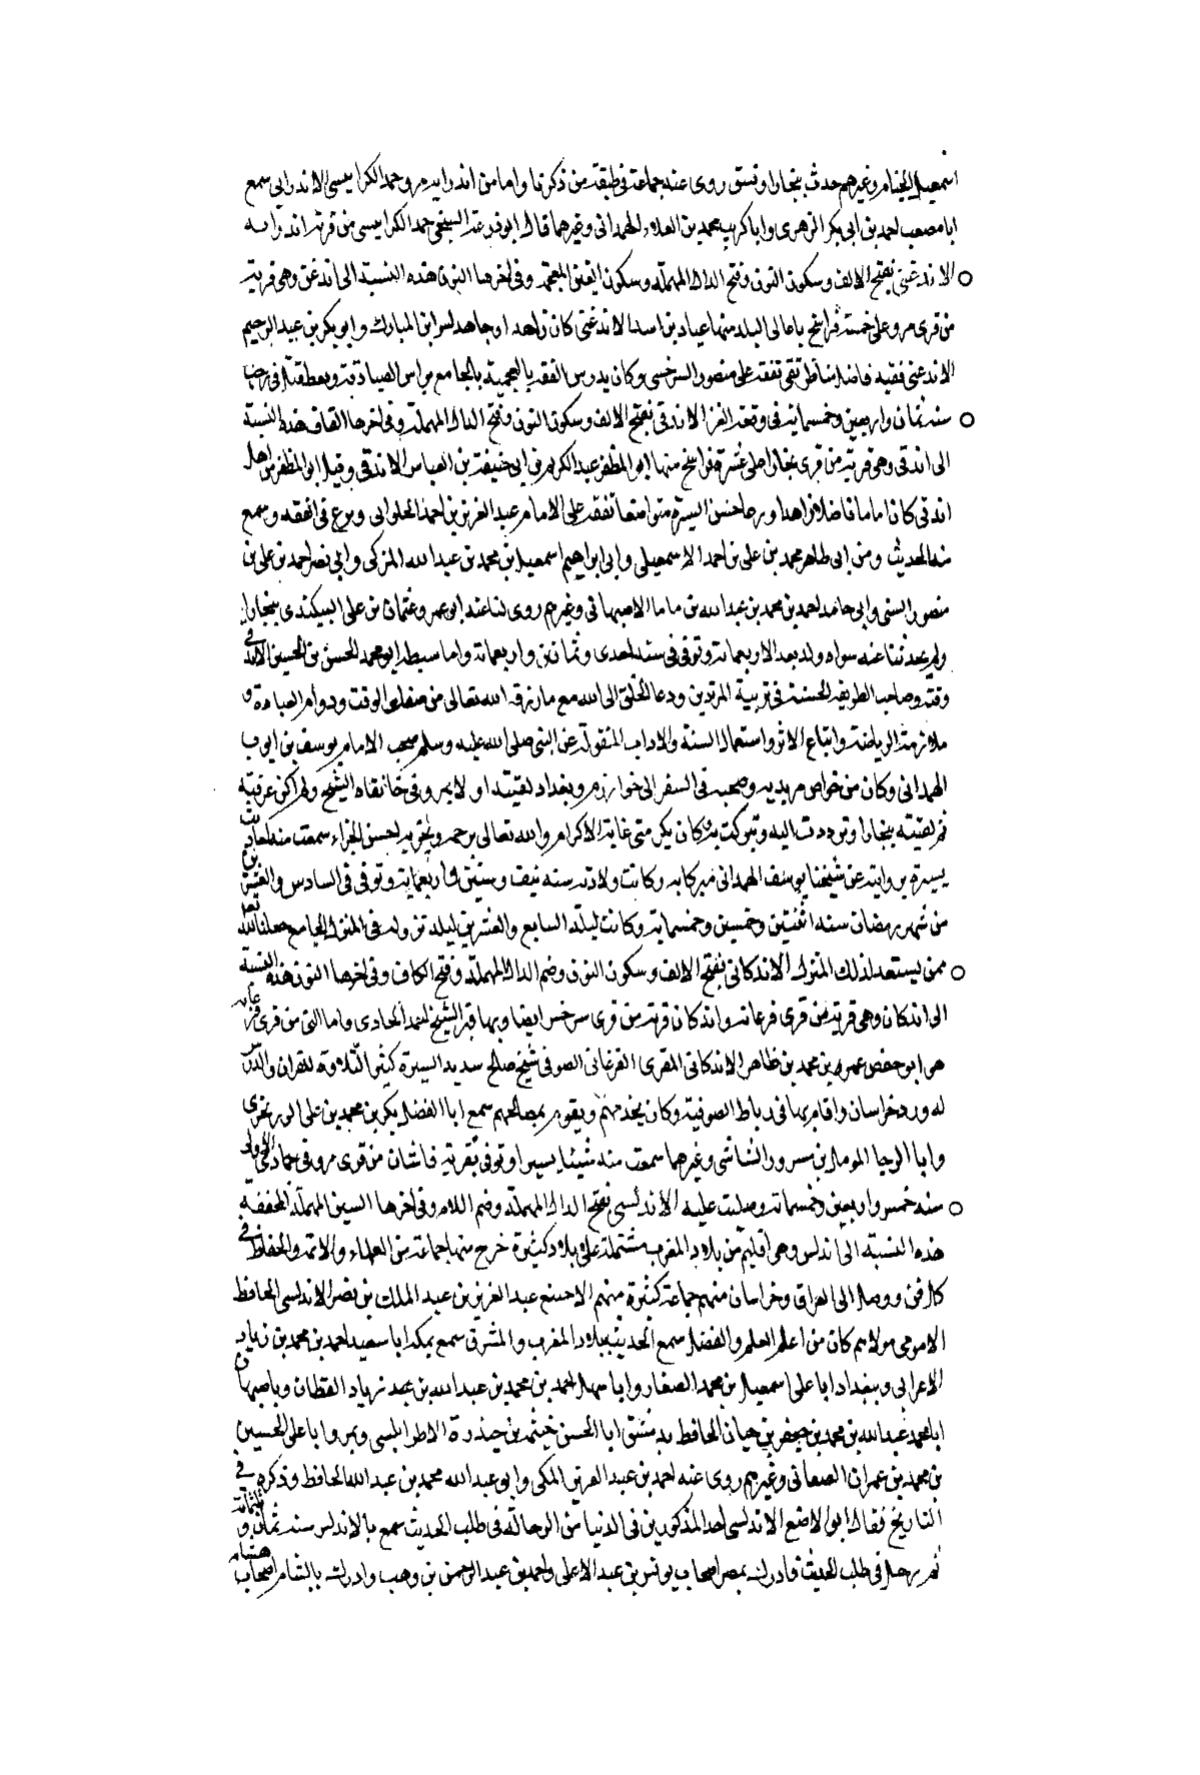 اسمعيل الخيام وغيرهم حدث ببخارا ونسف روى عنه جماعة في طبقة من ذكرنا واما من اندرابه مرو حمد الكرابيسى الاندرابى سمع
ابا مصعب احمد بن ابى بكر الزهرى وابا كريب محمد بن العلاء الهمدانى وغيرهما قال ابو زرعة السبخى حمد الكرابيسى من قرية اندرابه
الاندغنى بفتح الالف وسكون النون وفتح الدال المهملة وسكون الغين المعجمة وفى اخرها النون هذه النسبة الى اندغن وهى قرية
من قرى مرو على خمسة فراسخ باعالى البلد منها عياد بن اسد الاندغنى كان زاهدا وجاهد لسوا بن المبارك وابو بكر بن عبد الرحيم
الاندغنى فقيه فاضل مناظر تقى تفقه على منصور السرخسى وكان يدرس الفقه بالعجمية بالجامع براس الصيادفة وبعطفة فى رجب
سنة ثمان واربعين وخمسماية فى وقعة الغز الاندقى بفتح الالف وسكون النون وفتح الدال المهملة وفى اخرها القاف هذه النسبة
الى اندقى وهى قرية من قرى بخارا على عشرة فراسخ منها ابو المظفر عبد الكريم بن ابى حنيفة بن العباس الاندقى وقيل ابو المظفر من اهل
اندقى كان اماما فاضلا زاهدا ورعا حسن السيرة متواضعا تفقه على الامام عبد العزيز بن احمد الحلوانى وبرع فى الفقه وسمع
منه الحديث ومن ابى طاهر محمد بن على بن احمد الاسمعيلى وابى ابراهيم اسمعيل بن محمد بن عبد الله المزكى وابى نصر احمد بن على بن
منصور السنى وابى حامد احمد بن محمد بن عبد الله بن ماما الاصبهانى وغيرهم روى لنا عنه ابو عمرو عثمان بن على البيكندى ببخارا
ولم يحدثنا عنه سواه ولد بعد الاربعماية وتوفى فى سنة احدى وثمانين واربعماية واما سبطه ابو محمد الحسن بن الحسين الاندقى
وقته وصاحب الطريقة الحسنة فى تربية المريدين ودعا الخلق الى الله مع ما رزقه الله تعالى من صفاء الوقت ودوام العبادة و
ملازمة الرياضة واتباع الاثر واستعمال السنة والاداب المنقولة عن النبى صلى الله عليه وسلم صحب الامام يوسف بن ايوب
الهمدانى وكان من خواص مريديه وصحبه فى السفر الى خوارزم وبغداد لقيته اولا بمرو فى خانقاه الشيخ ولم اكن عرفته
ثم لقيته ببخارا وترددت اليه وتبركت به وكان يكرمنى غاية الاكرام والله تعالى يرحمه ويجزيه احسن الجزاء سمعت منه احاديث
يسيرة بروايته عن شيخنا يوسف الهمدانى تبركا به وكانت ولادته سنة نيف وستين واربعماية وتوفى فى السادس والعشرين
من شهر رمضان سنة اثنتين وخمسين وخمسماية وكانت ليلة السابع والعشرين ليلة نزوله فى المنزل الجامع جعلنا الله تعالى
ممن يستعد لذلك المنزل الاندكانى بفتح الالف وسكون النون وضم الدال المهملة وفتح الكاف وفى اخرها النون هذه النسبة
الى اندكان وهى قرية من قرى فرغانة واندكان قرية من قرى سرخس ايضا وبها قبر الشيخ احمد الحادى واما التى من قرى فرغانة
هو ابو حفص عمر بن محمد بن طاهر الاندكانى المقرى الفرغانى الصوفى شيخ صالح سديد السيرة كثير التلاوة للقران والدرس
له ورد خراسان واقام بها فى رباط الصوفية وكان يخدمهم ويقوم بمصالحهم سمع ابا الفضل بكر بن محمد بن على الزرنجرى
وابا الرجا المومل بن مسرور الشاشى وغيرهما سمعت منه شيئا يسيرا وتوفى بقرية فاشان من قرى مرو فى جمادى الاولى
سنة خمس واربعين وخمسماية وصليت عليه الاندلسى بفتح الدال المهملة وضم اللام وفى اخرها السين المهملة المخففة
هذه النسبة الى اندلس وهى اقليم من بلاد المغرب مشتملة على بلاد كثيرة خرج منها جماعة من العلماء والائمة والحفاظ فى
كل فن ووصل الى العراق وخراسان منهم جماعة كثيرة منهم الاصبغ عبد العزيز بن عبد الملك بن نصر الاندلسى الحافظ
الاموى مولاهم كان من اهل العلم والفضل سمع الحديث ببلاد المغرب والمشرق سمع بمكة ابا سعيد احمد بن محمد بن زياد بن
الاعرابى وببغداد ابا على اسمعيل بن محمد الصفار وابا سهل احمد بن محمد بن عبد الله بن محمد زياد القطان وباصبهان
ابا محمد عبد الله بن محمد بن جعفر بن حيان الحافظ بدمشق ابا الحسن خيثمة بن حيدرة الاطرابلسى وبمرو ابا على الحسين
بن محمد بن عمران الصغانى وغيرهم روى عنه احمد بن عبد العزيز المكى وابو عبد الله محمد بن عبد الله الحافظ وذكره فى
التاريخ فقال ابو الاصبغ الاندلسى احد المذكورين فى الدنيا من الرحالة فى طلب الحديث سمع بالاندلس سنة ثمان و ثلثماية
ثم رحل فى طلب الحديث فادرك بمصر اصحاب يونس بن عبد الاعلى واحمد بن عبد الرحمن بن وهب وادرك بالشام اصحاب هشام